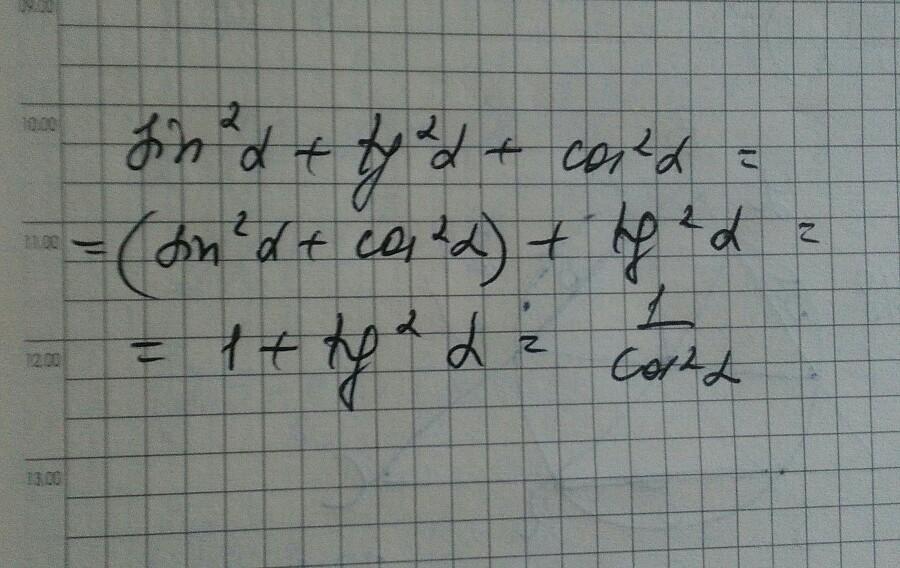 09.00
10.00
sin²α + tg²α + cos²α =
11.00
= (sin²α + cos²α) + tg²α =
12.00
= 1 + tg²α = 1/cos²α
13.00